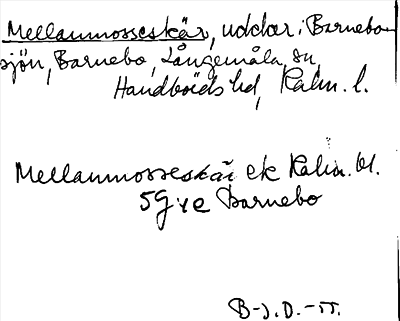 Mellanmosseskär, uddar i Barnebo-
sjön, Barnebo, Långemåla sn,
Handbörds hd, Kalm. l.
Mellanmosseskär ek Kalm. bl.
5G ve Barnebo
B-J. D. -55.